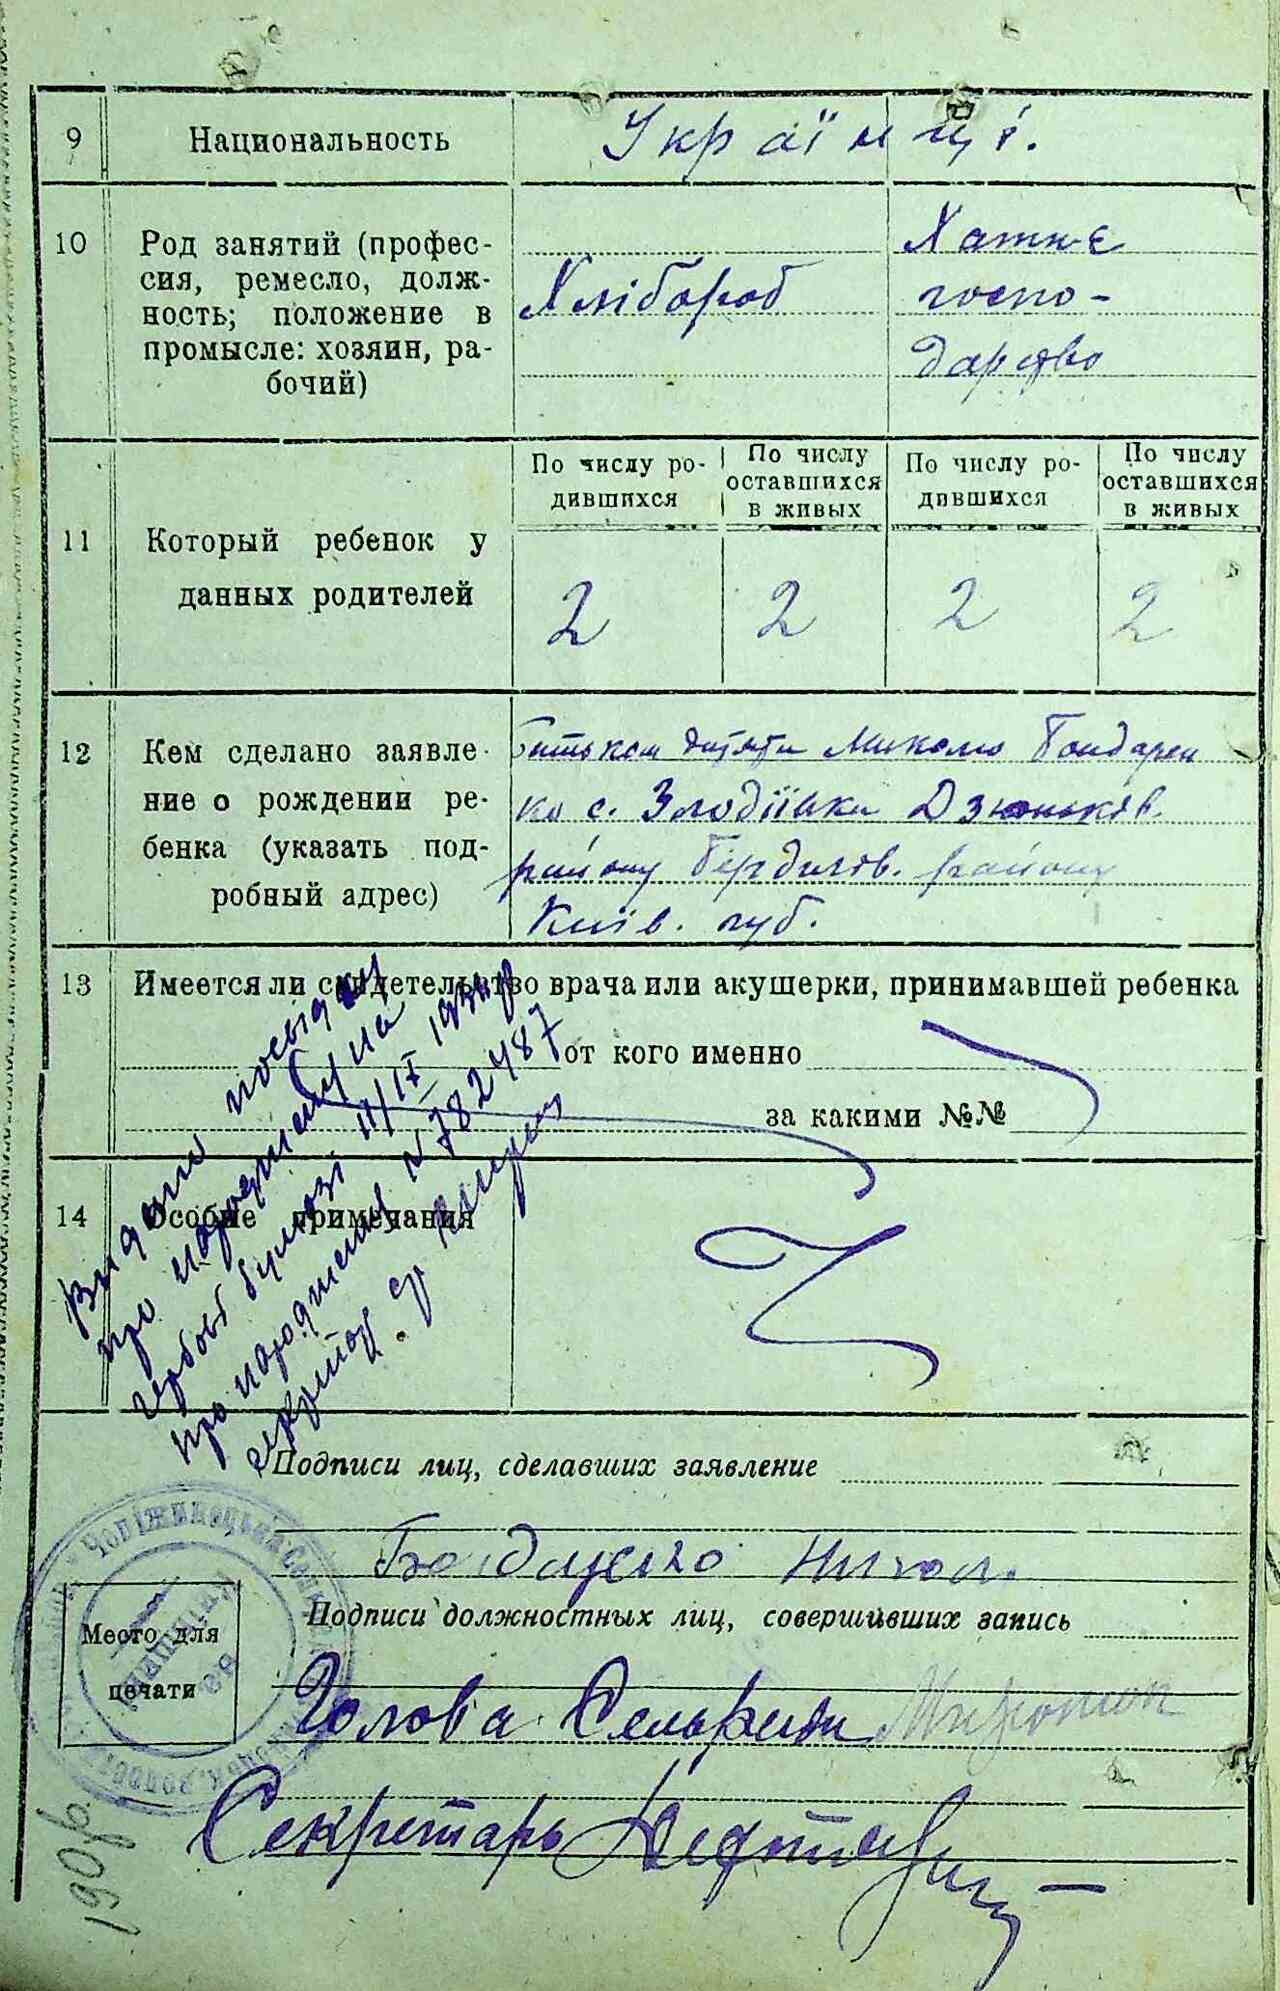 9 Национальность Українці.
10 Род занятий (профес-
сия, ремесло, долж-
ность; положение в
промысле: хозяин, ра-
бочий)
Хлібороб
Хатнє
госпо-
дарство
По числу ро-
дившихся
По числу
оставшихся
в живых
По числу ро-
дившихся
По числу
оставшихся
в живых
11 Который ребенок у
данных родителей
2 2 2 2
12 Кем сделано заявле-
ние о рождении ре-
бенка (указать под-
робный адрес)
Батьком дитяти Миколою Бондарен
ко с. Злодіївки Дзюньків.
району Бердичів. району
Київ. губ.
13 Имеется ли свидетельство врача или акушерки, принимавшей ребенка
от кого именно
за какими №№
14 Особые примечания
Видано посвідку
про народження на
гербові бумазі 11/IX
про народження № 782487
секретар с/р
Подписи лиц, сделавших заявление
Бондаренко Никол.
Подписи должностных лиц, совершивших запись
Место для
печати
Голова Сельради
Секретарь
190